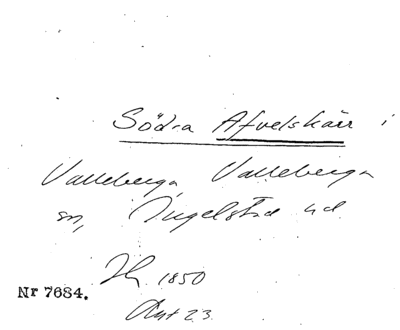 Södra Afvelskärr i
Valleberga, Valleberga
sn, Ingelstad hd
1850
Nr 7684.
Akt 23.